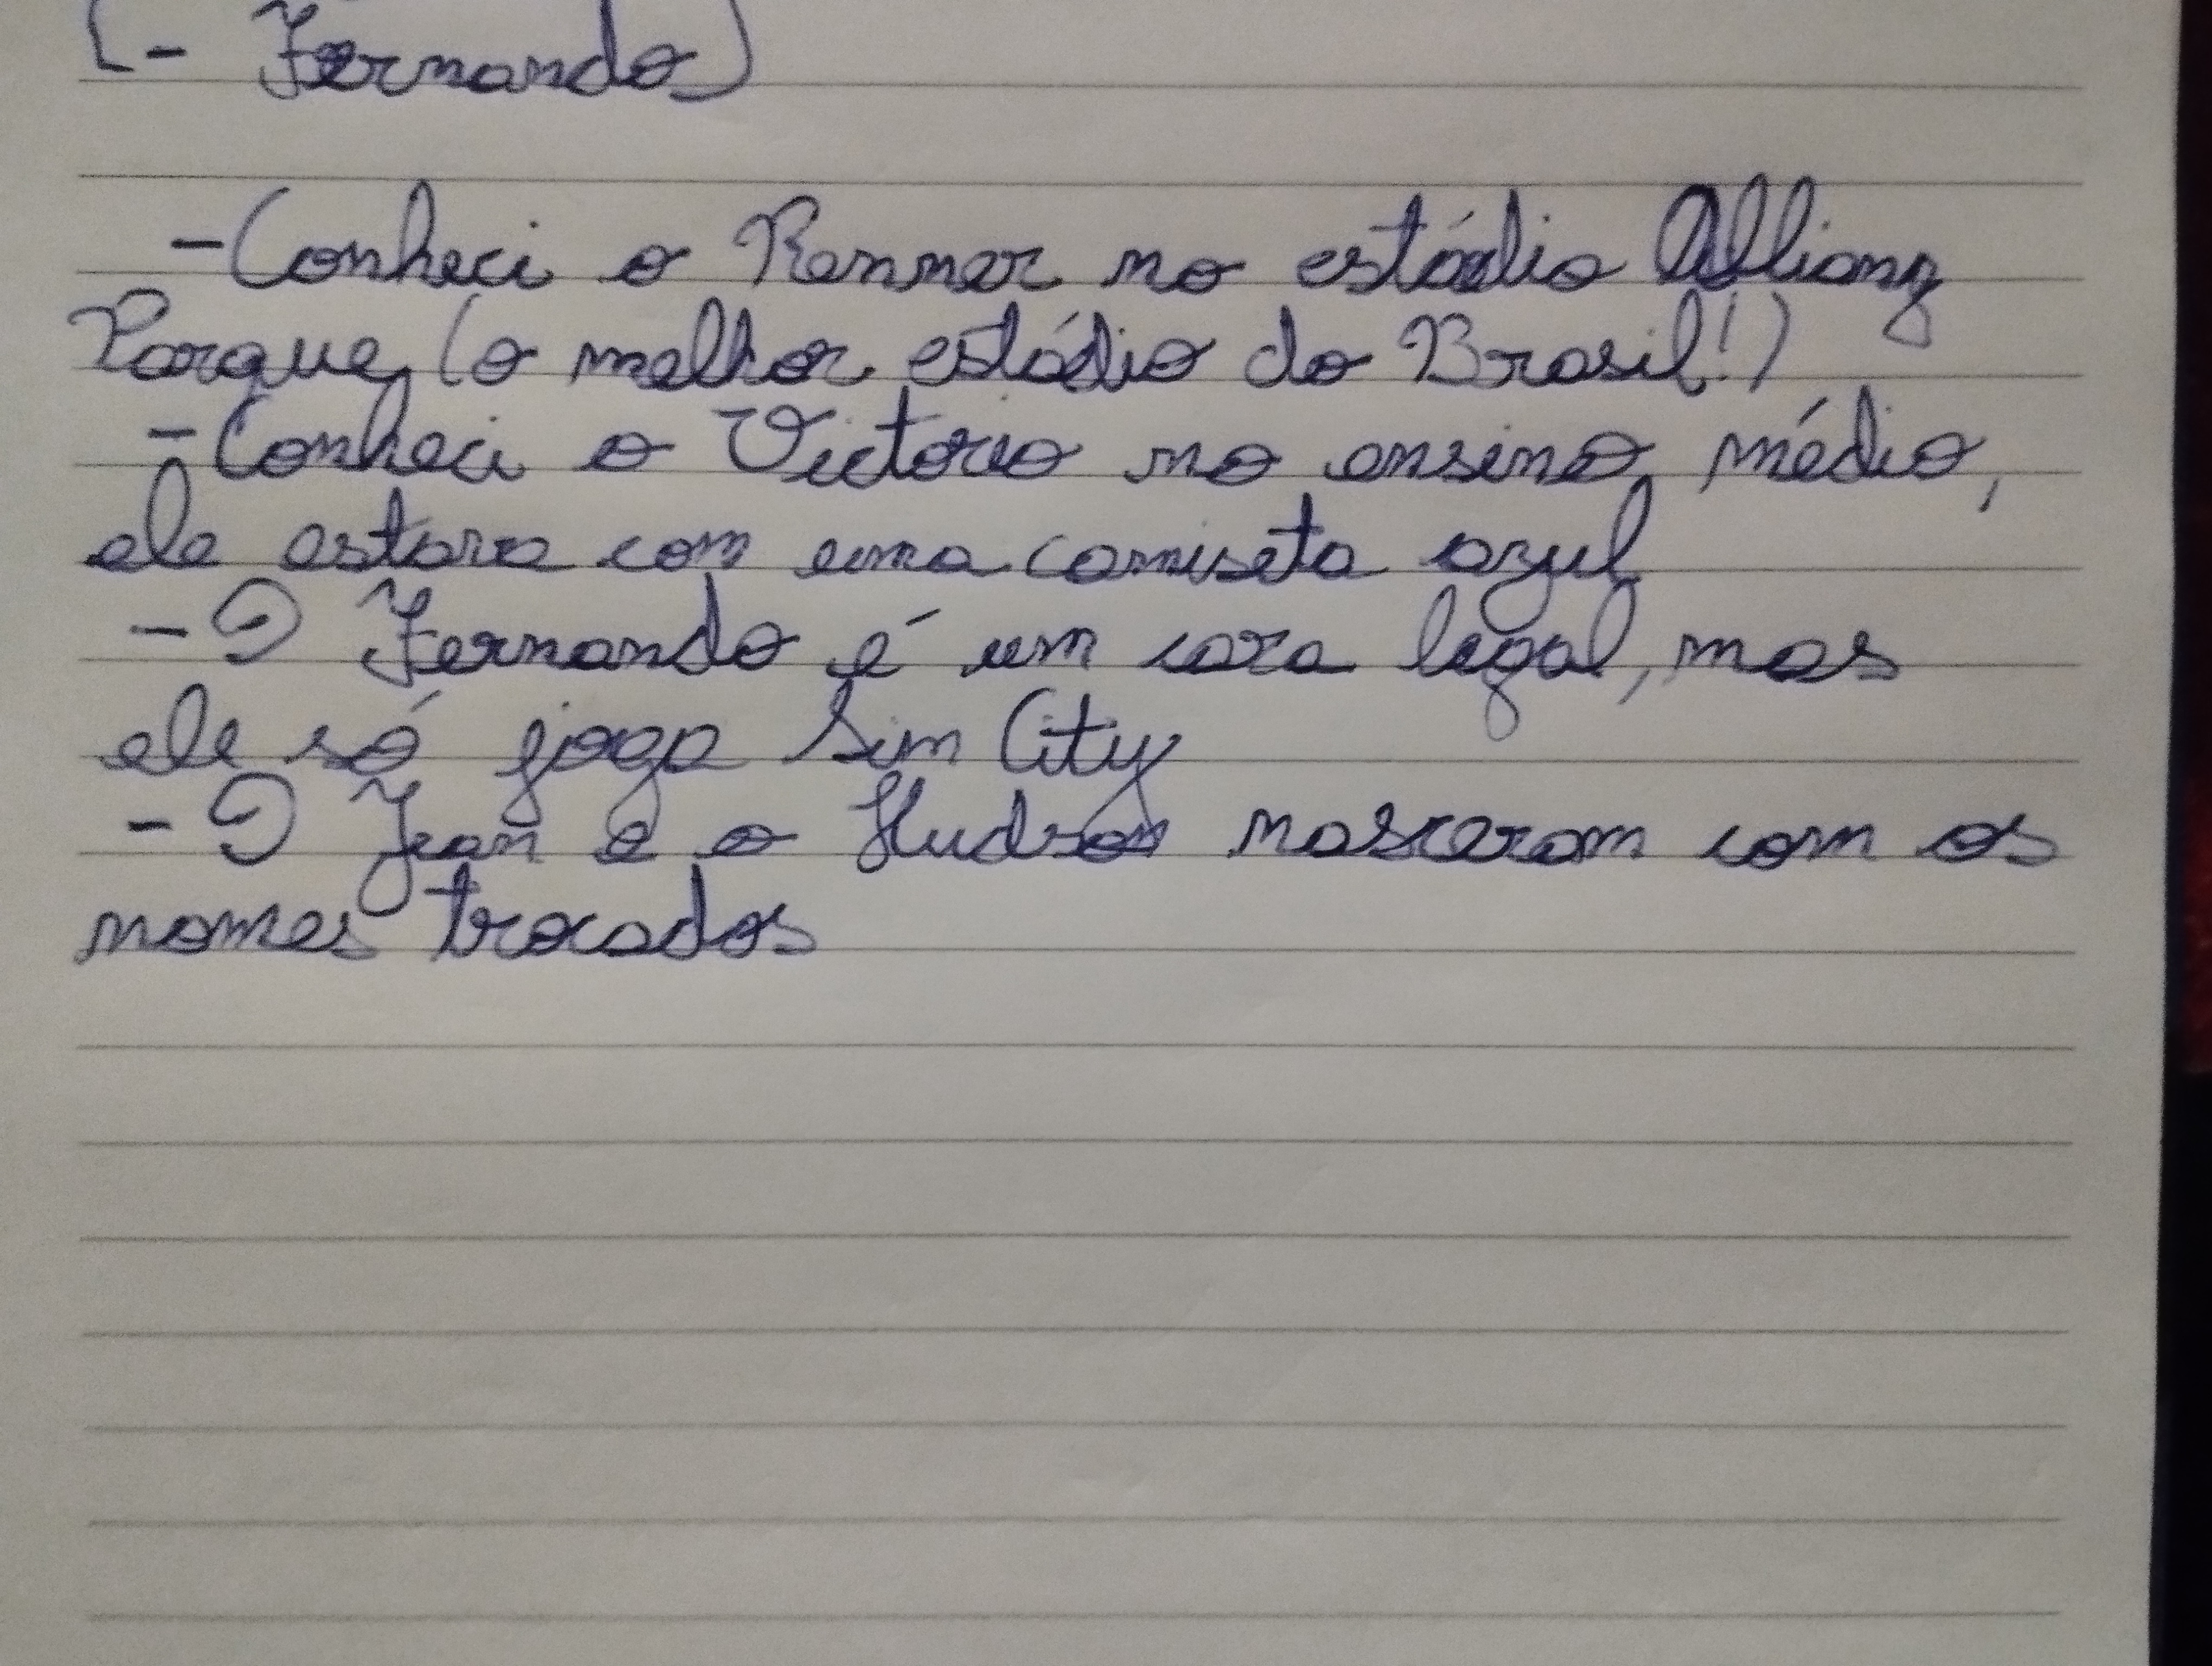 [- Fernando]
-Conheci o Renner no estádio Allianz
Parque (o melhor estádio do Brasil!)
-Conheci o Victorio no ensino médio,
ele estava com uma camiseta azul
- O Fernando é um cara legal, mas
ele só joga Sim City
- O Jean e o Hudson nasceram com os
nomes trocados